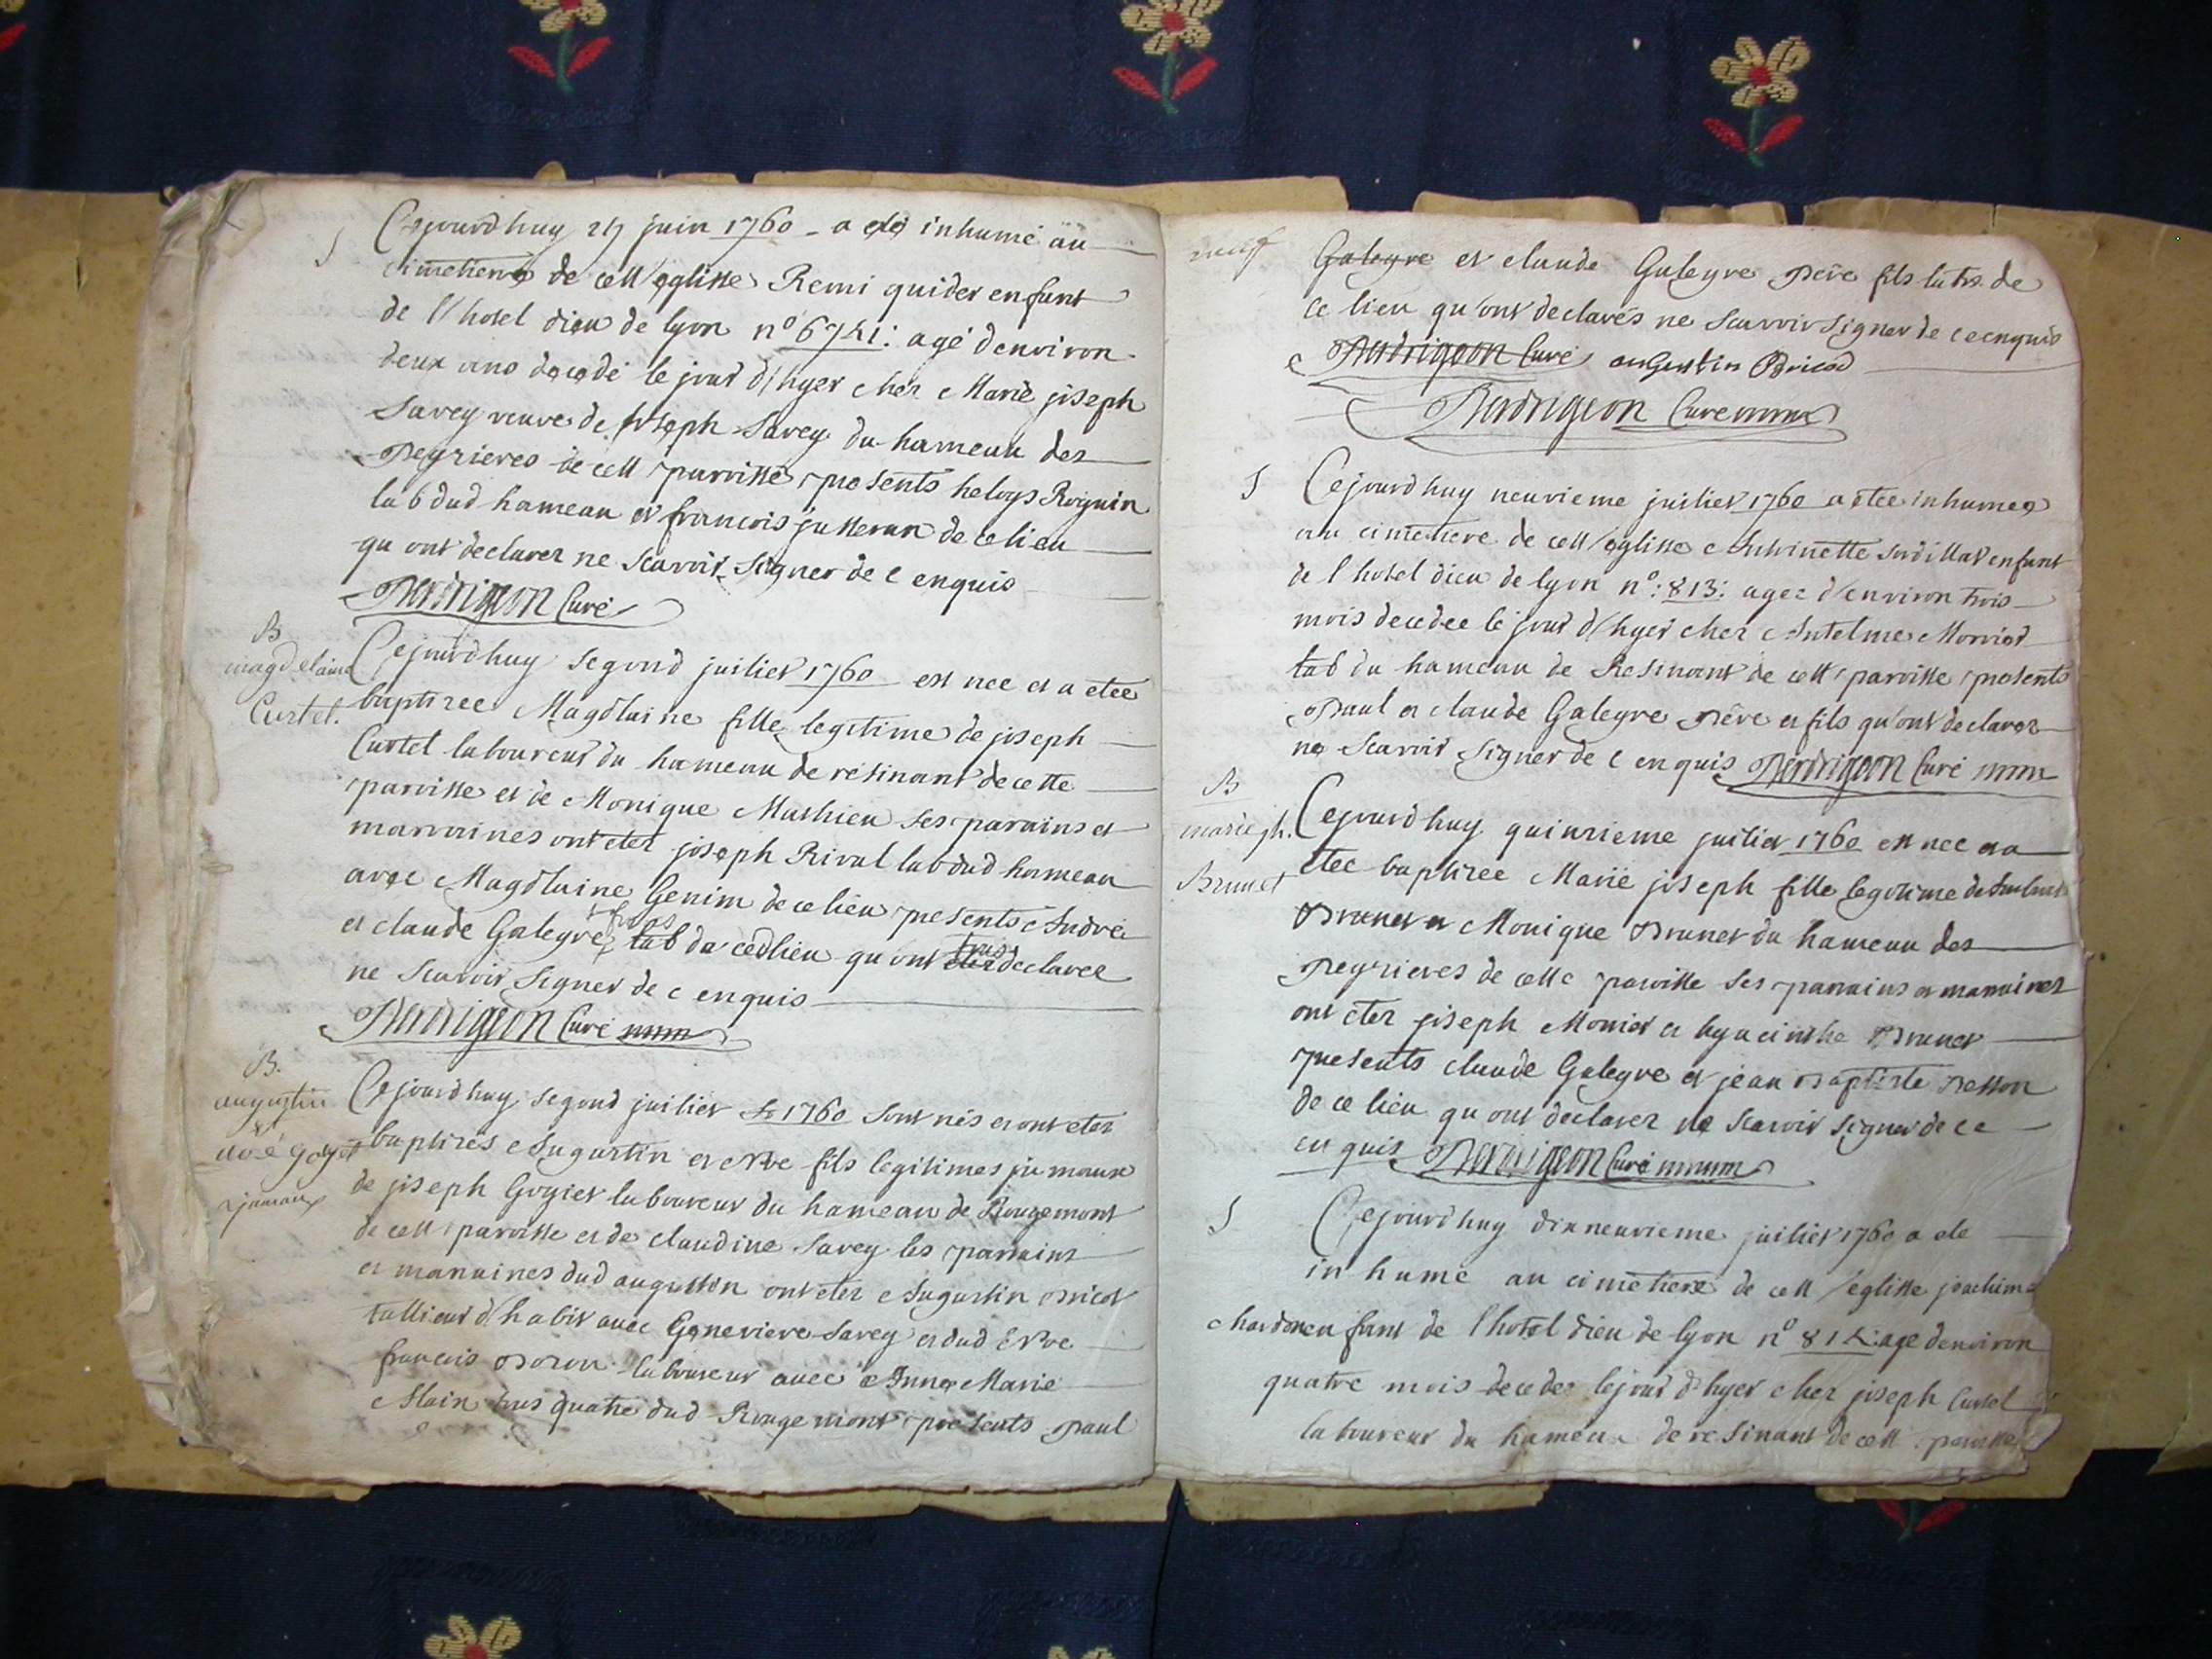 S
Cejourdhuy 27 juin 1760 - a été inhumé au
cimetiere de cett eglisse Remi quider enfant
de l'hotel dieu de lyon n° 6741: agé denviron
deux ans decedé le jour d'hyer chez Marie joseph
Savey veuve de joseph Savey du hameau des
peyrieres de cett paroisse presents heloys Roguin
lab dud hameau et francois jusseran de ce lieu
qu ont declarez ne scavoir signer de c enquis
Perdrigeon Curé
B
magdelaine
Curtet.
Cejourdhuy segond juiliet 1760 est nee et a etee
baptizee Magdlaine fille legitime de joseph
Curtet laboureur du hameau de resinant de cette
paroisse et de Monique Mathieu ses parains et
marraines ont etez joseph Rival lab dud hameau
avec Magdlaine Genim de ce lieu presents André
et claude Galeyre freres lab du cedlieu qu ont tous declarez
ne scavoir signer de c enquis
Perdrigeon Curé
B.
augustin
et
noé goyet
jumaux
Cejourdhuy segond juiliet 1760 sont nés et ont etez
baptizés Augustin et Noe fils legitimes jumaux
de joseph Goyiet laboureur du hameau de Rougemont
de cett paroisse et de claudine Savey les parrains
et marraines dud augustin ont etez Augustin Bricot
tallieur d'habit avec Genevieve Savey et dud Noe
francois laboureur avec Anne Marie
Alain tous quatre dud Rougemont presents paul
Galeyre et claude Galeyre pere fils de
ce lieu qu'ont declarés ne scavoir signer de ce enquis
Perdrigeon Curé augustin Bricod
Perdrigeon Curé
S
Cejourdhuy neuvieme juiliet 1760 a etee inhumee
au cimetiere de cett eglisse Antoinette enfant
de l hotel dieu de lyon n°: 813: agez d'environ trois
mois decedee le jour d'hyer chez Antelme Morviet
lab du hameau de Resinant de cett paroisse presents
paul et claude Galeyre pere et fils qu'ont declarez
ne scavoir signer de c enquis Perdrigeon Curé
B
marie jh.
Brunet
Cejourdhuy quinzieme juiliet 1760 est nee et a
etee baptizee Marie joseph fille legitime de
Brunet et Monique Brunet du hameau des
peyrieres de cette paroisse ses parrains et marraines
ont etez joseph Moniet et hyacinthe Brunet
presents claude Galeyre et jean Baptiste
de ce lieu qu ont declarez ne scavoir signer de ce
enquis Perdrigeon Curé
S
Cejourdhuy dixneuvieme juiliet 1760 a ete
inhumé au cimetiere de cett eglisse joachim
chardon enfant de l'hotel dieu de lyon n° 814: age denviron
quatre mois decedez le jour d'hyer chez joseph Curtet
laboureur du hameau de resinant de cett paroisse